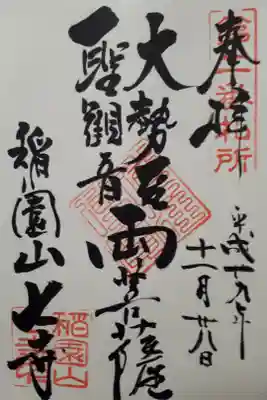 奉拝
平成十九年
十一月廿八日
大勢至
聖観音
両菩薩
稲園山七寺
稲園山